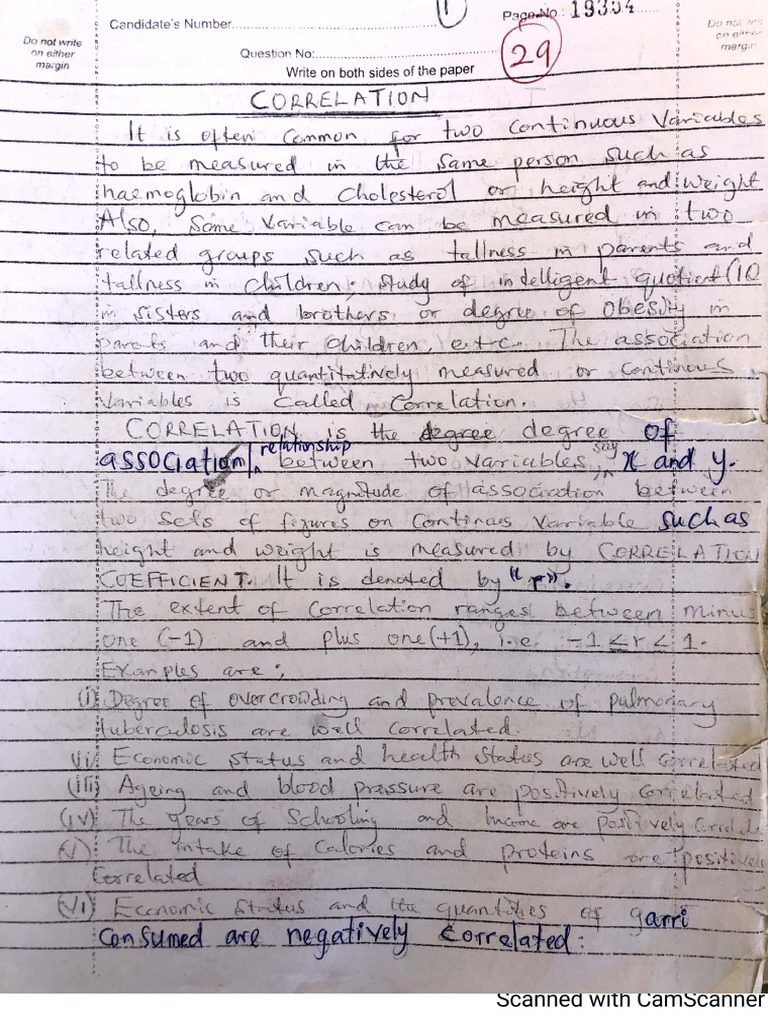 Candidate's Number
Page No: 19354
Do not write
on either
margin
Question No:
29
Write on both sides of the paper
CORRELATION
It is often common for two continuous variables
to be measured in the same person such as
haemoglobin and cholesterol or height and weight
Also, same variable can be measured in two
related groups such as tallness in parents and
tallness in children; study of intelligent quotient (IQ
in sisters and brothers or degree of obesity in
parents and their children, etc. The association
between two quantitatively measured or continous
variables is called correlation.
CORRELATION is the degree degree of
association/ relationship between two variables, say x and y.
The degree or magnitude of association between
two sets of figures on continous variable such as
height and weight is measured by CORRELATION
COEFFICIENT. It is denoted by "r".
The extent of correlation ranges between minus
one (-1) and plus one (+1), i.e. -1 ≤ r < 1.
Examples are;
(i) Degree of overcrowding and prevalence of pulmonary
tuberculosis are well correlated.
(ii) Economic status and health status are well correlated
(iii) Ageing and blood pressure are positively correlated
(iv) The years of schooling and income are positively
(v) The intake of calories and proteins are positively
correlated
(vi) Economic status and the quantities of garri
consumed are negatively correlated.
Scanned with CamScanner